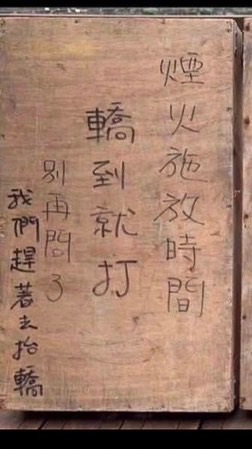 煙火施放時間
轎到就打
別再問了
我們趕著去抬轎